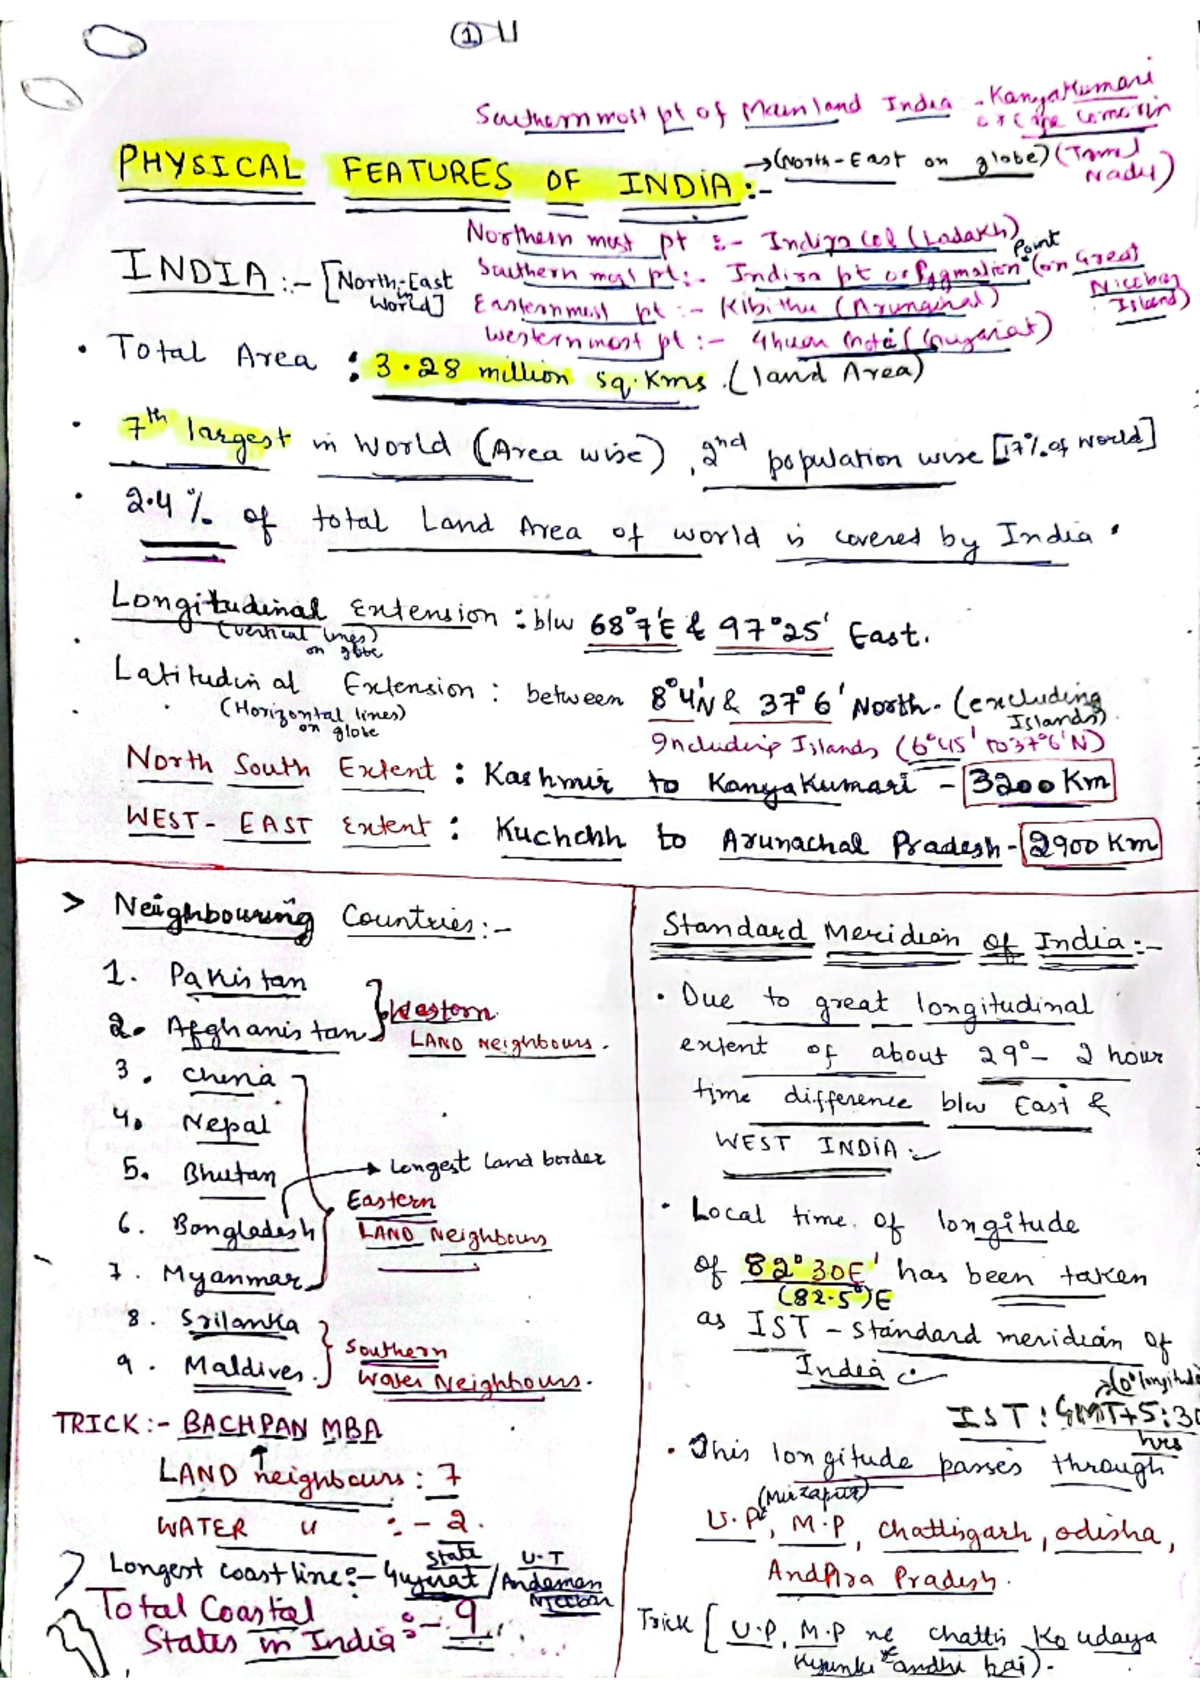 ① U
Southernmost pt of Mainland India :- Kanyakumari
or Cape Comorin
(Tamil Nadu)
PHYSICAL FEATURES OF INDIA :- →(North-East on globe)
INDIA :- [North-East in World]
Northern most pt :- Indira Col (Ladakh)
Southern most pt:- Indira pt or Pygmalion Point (on Great Nicobar Island)
Easternmost pt :- Kibithu (Arunachal)
Westernmost pt :- Ghuar Mota (Gujarat)
• Total Area : 3.28 million sq.kms. (land Area)
• 7th largest in World (Area wise), 2nd population wise [17% of World]
• 2.4% of total Land Area of world is covered by India.
• Longitudinal Extension : b/w 68°7'E & 97°25' East.
(vertical lines) on globe
• Latitudinal Extension : between 8°4'N & 37°6' North. (excluding Islands)
(Horizontal lines) on globe
Including Islands (6°45' to 37°6'N)
North South Extent : Kashmir to Kanyakumari - 3200 Km
WEST-EAST Extent : Kuchchh to Arunachal Pradesh - 2900 Km
> Neighbouring Countries :-
1. Pakistan
2. Afghanistan
Western
LAND Neighbours.
3. China
4. Nepal
5. Bhutan
→ Longest land border
6. Bangladesh
7. Myanmar
Eastern
LAND Neighbours
8. Srilanka
9. Maldives.
Southern
Water Neighbours.
TRICK :- BACHPAN MBA
LAND neighbours : 7
WATER " :- 2.
Longest coastline :- Gujarat / Andaman Nicobar
State U.T
Total Coastal
States in India :- 9
Standard Meridian of India :-
• Due to great longitudinal
extent of about 29° - 2 hour
time difference b/w East &
WEST INDIA.
• Local time of longitude
of 82°30E' has been taken
(82.5°)E
as IST - Standard meridian of
India.
→(0° longitude
IST : GMT+5:30
hrs
• This longitude passes through
(Mirzapur)
U.P, M.P, Chattisgarh, odisha,
Andhra Pradesh.
Trick [U.P, M.P ne chattis ko udaya
kyunki andhi hai).